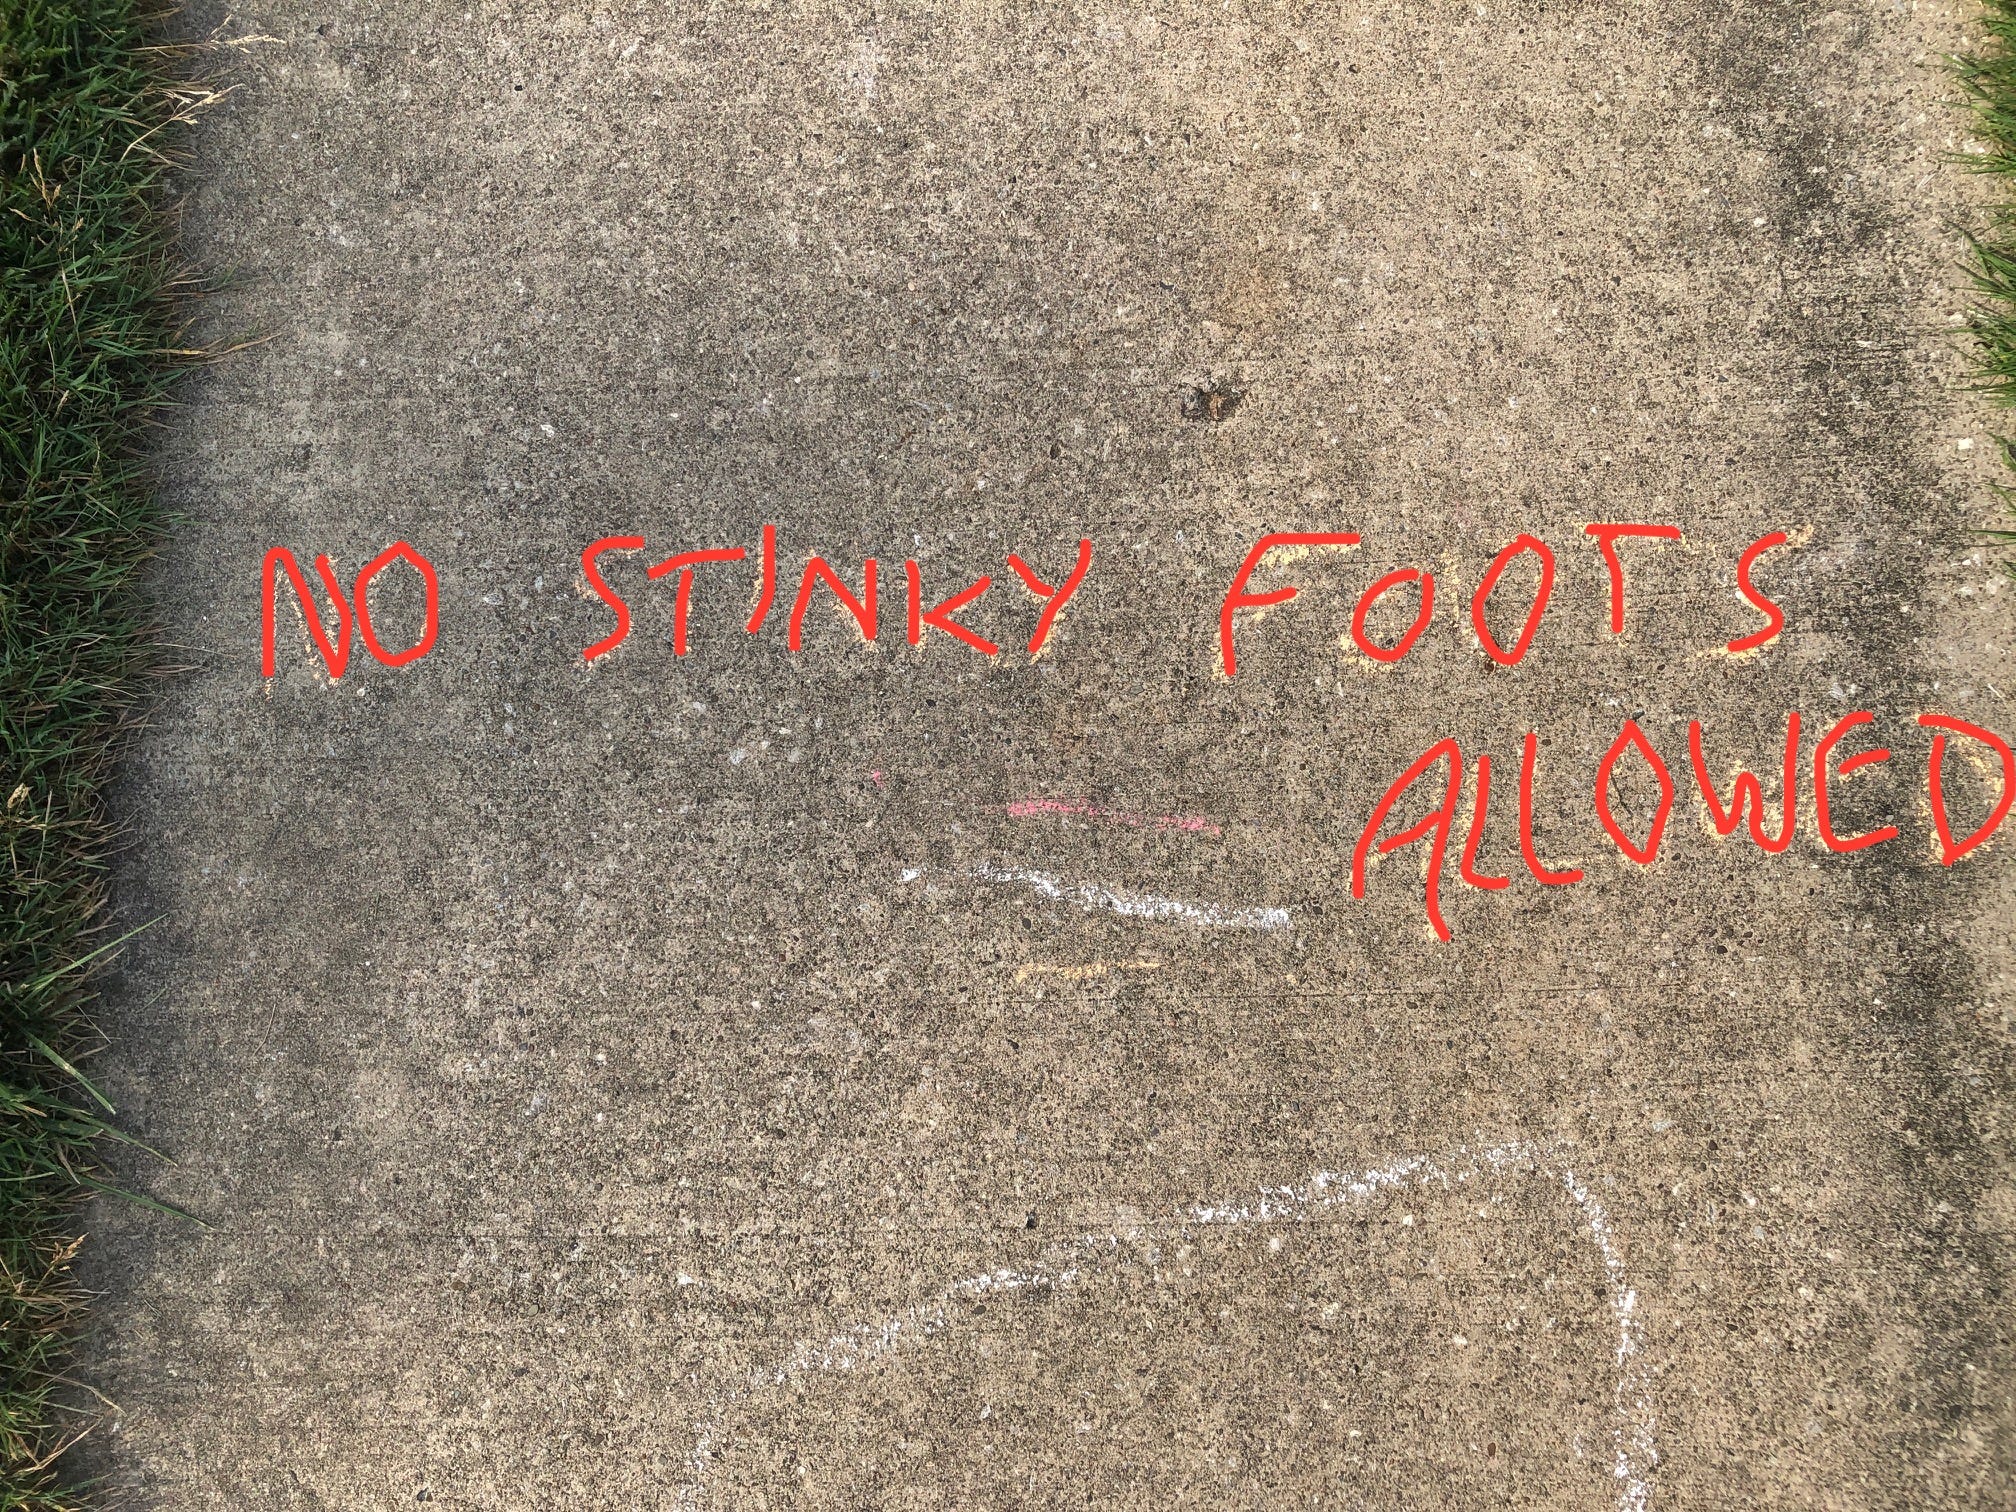 NO STINKY FOOTS
ALLOWED